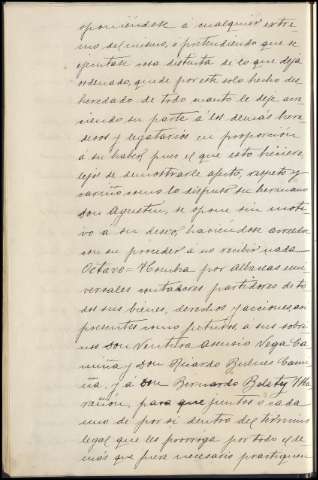 oponiéndose á cualquier extre-
mo del mismo, ó pretendiendo que se
ejecutase cosa distinta de lo que deja
ordenado, quede por este solo hecho des-
heredado de todo cuanto le deje acre-
ciendo su parte á los demás here-
deros y legatarios en proporción
á su haber, pues el que esto hiciere,
lejos de demostrarle afecto, respeto y
cariño como lo dispuso su hermano
Don Agustin, se opone sin moti-
vo á su deseo, haciéndose acreedor
con su proceder á no recibir nada
Octavo = Nombra por Albaceas uni-
versales contadores partidores de to-
dos sus bienes, derechos y acciones, así
presentes como futuros, á sus sobri-
nos Don Ventura Asensio Vega Ca-
miña y Don Ricardo Bulnes Cami-
ña, y á Don Bernardo
para que juntos ó cada
uno de por sí dentro del término
legal que les prorroga por todo el de-
más que fuese necesario practiquen